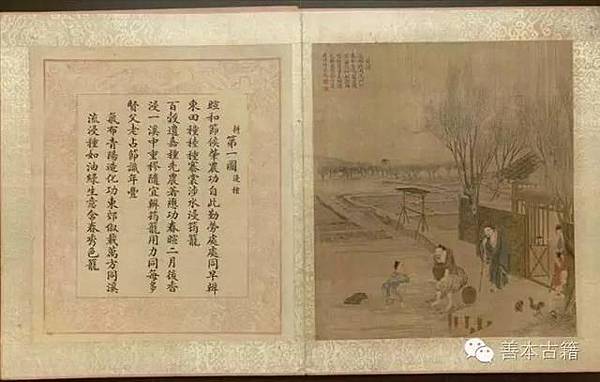 耕第一圖浸種
暄和節候肇農功自此勤勞處處同早辨
東田穜稑種褰裳涉水浸筠籠
百穀遺嘉種先農著應功春暄二月後香
浸一溪中重穋隨宜辨筠籠用力同每多
賢父老占節識年豐
氣布青陽造化功東郊俶載萬方同溪
流浸種如油綠生意含春秀色籠
善本古籍